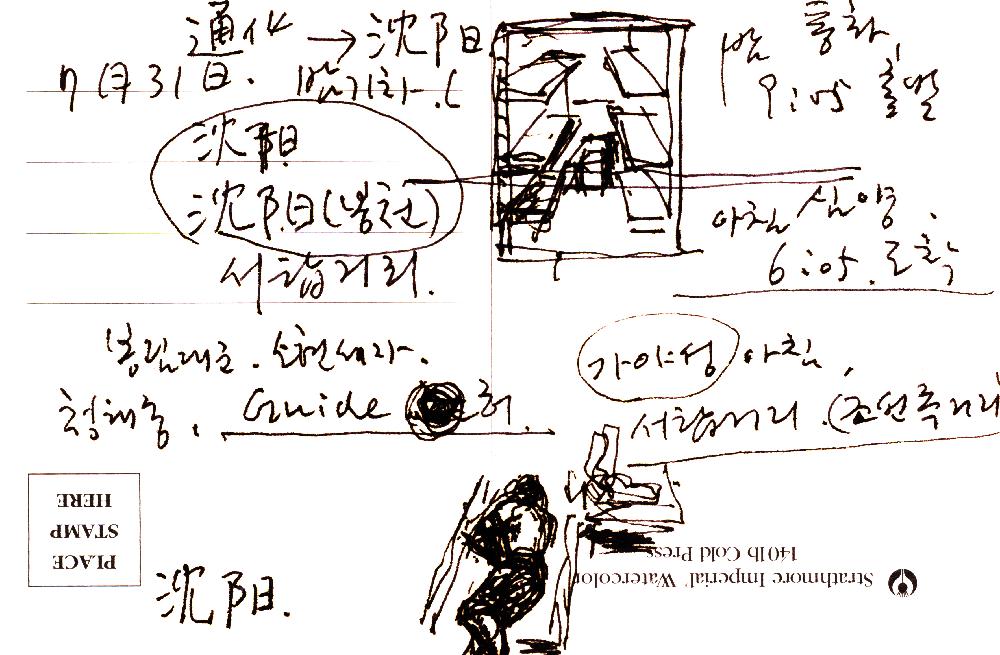 通化 → 沈阳
7月31日. 밤기차.
밤 통화,
9:05 출발
沈阳
沈阳(봉천)
서탑거리.
아침 심양.
6:05. 도착
가야성 아침,
서탑거리.(조선족거리
Guide
PLACE
STAMP
HERE
沈阳.
Strathmore Imperial Watercolor
140lb Cold Press